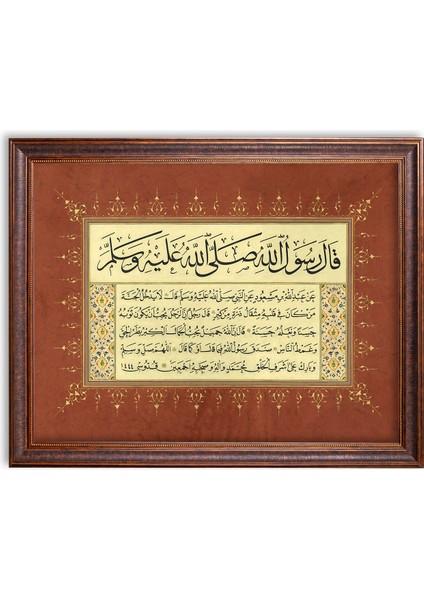 قَالَ رَسُولُ اللهِ صَلَّى اللهُ عَلَيْهِ وَسَلَّمَ
عَنْ عَبْدِ اللهِ بْنِ مَسْعُودٍ عَنِ النَّبِيِّ صَلَّى اللهُ عَلَيْهِ وَسَلَّمَ قَالَ لَا يَدْخُلُ الْجَنَّةَ
مَنْ كَانَ فِي قَلْبِهِ مِثْقَالُ ذَرَّةٍ مِنْ كِبْرٍ قَالَ رَجُلٌ إِنَّ الرَّجُلَ يُحِبُّ أَنْ يَكُونَ ثَوْبُهُ
حَسَنًا وَنَعْلُهُ حَسَنَةً قَالَ إِنَّ اللهَ جَمِيلٌ يُحِبُّ الْجَمَالَ الْكِبْرُ بَطَرُ الْحَقِّ
وَغَمْطُ النَّاسِ صَدَقَ رَسُولُ اللهِ فِيمَا قَالَ أَوْ كَمَا قَالَ اللَّهُمَّ صَلِّ وَسَلِّمْ
وَبَارِكْ عَلَى أَشْرَفِ الْخَلْقِ مُحَمَّدٍ وَآلِهِ وَصَحْبِهِ أَجْمَعِينَ